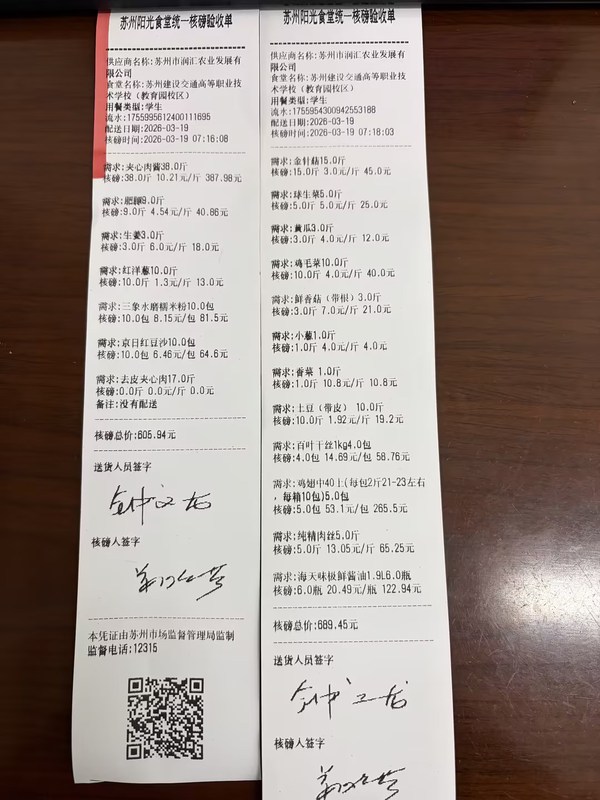 苏州阳光食堂统一核磅验收单
供应商名称:苏州市润汇农业发展有
限公司
食堂名称:苏州建设交通高等职业技
术学校（教育园校区）
用餐类型:学生
流水:1755995612400111695
配送日期:2026-03-19
核磅时间:2026-03-19 07:16:08
需求:夹心肉酱38.0斤
核磅:38.0斤 10.21元/斤 387.98元
需求:肥膘9.0斤
核磅:9.0斤 4.54元/斤 40.86元
需求:生姜3.0斤
核磅:3.0斤 6.0元/斤 18.0元
需求:红洋葱10.0斤
核磅:10.0斤 1.3元/斤 13.0元
需求:三象水磨糯米粉10.0包
核磅:10.0包 8.15元/包 81.5元
需求:京日红豆沙10.0包
核磅:10.0包 6.46元/包 64.6元
需求:去皮夹心肉17.0斤
核磅:0.0斤 0.0元/斤 0.0元
备注:没有配送
核磅总价:605.94元
送货人员签字
核磅人签字
本凭证由苏州市场监督管理局监制
监督电话:12315
苏州阳光食堂统一核磅验收单
供应商名称:苏州市润汇农业发展有
限公司
食堂名称:苏州建设交通高等职业技
术学校（教育园校区）
用餐类型:学生
流水:1755954300942553188
配送日期:2026-03-19
核磅时间:2026-03-19 07:18:03
需求:金针菇15.0斤
核磅:15.0斤 3.0元/斤 45.0元
需求:球生菜5.0斤
核磅:5.0斤 5.0元/斤 25.0元
需求:黄瓜3.0斤
核磅:3.0斤 4.0元/斤 12.0元
需求:鸡毛菜10.0斤
核磅:10.0斤 4.0元/斤 40.0元
需求:鲜香菇（带根）3.0斤
核磅:3.0斤 7.0元/斤 21.0元
需求:小葱1.0斤
核磅:1.0斤 4.0元/斤 4.0元
需求:香菜 1.0斤
核磅:1.0斤 10.8元/斤 10.8元
需求:土豆（带皮） 10.0斤
核磅:10.0斤 1.92元/斤 19.2元
需求:百叶干丝1kg4.0包
核磅:4.0包 14.69元/包 58.76元
需求:鸡翅中40上(每包2斤21-23左右
，每箱10包)5.0包
核磅:5.0包 53.1元/包 265.5元
需求:纯精肉丝5.0斤
核磅:5.0斤 13.05元/斤 65.25元
需求:海天味极鲜酱油1.9L6.0瓶
核磅:6.0瓶 20.49元/瓶 122.94元
核磅总价:689.45元
送货人员签字
核磅人签字